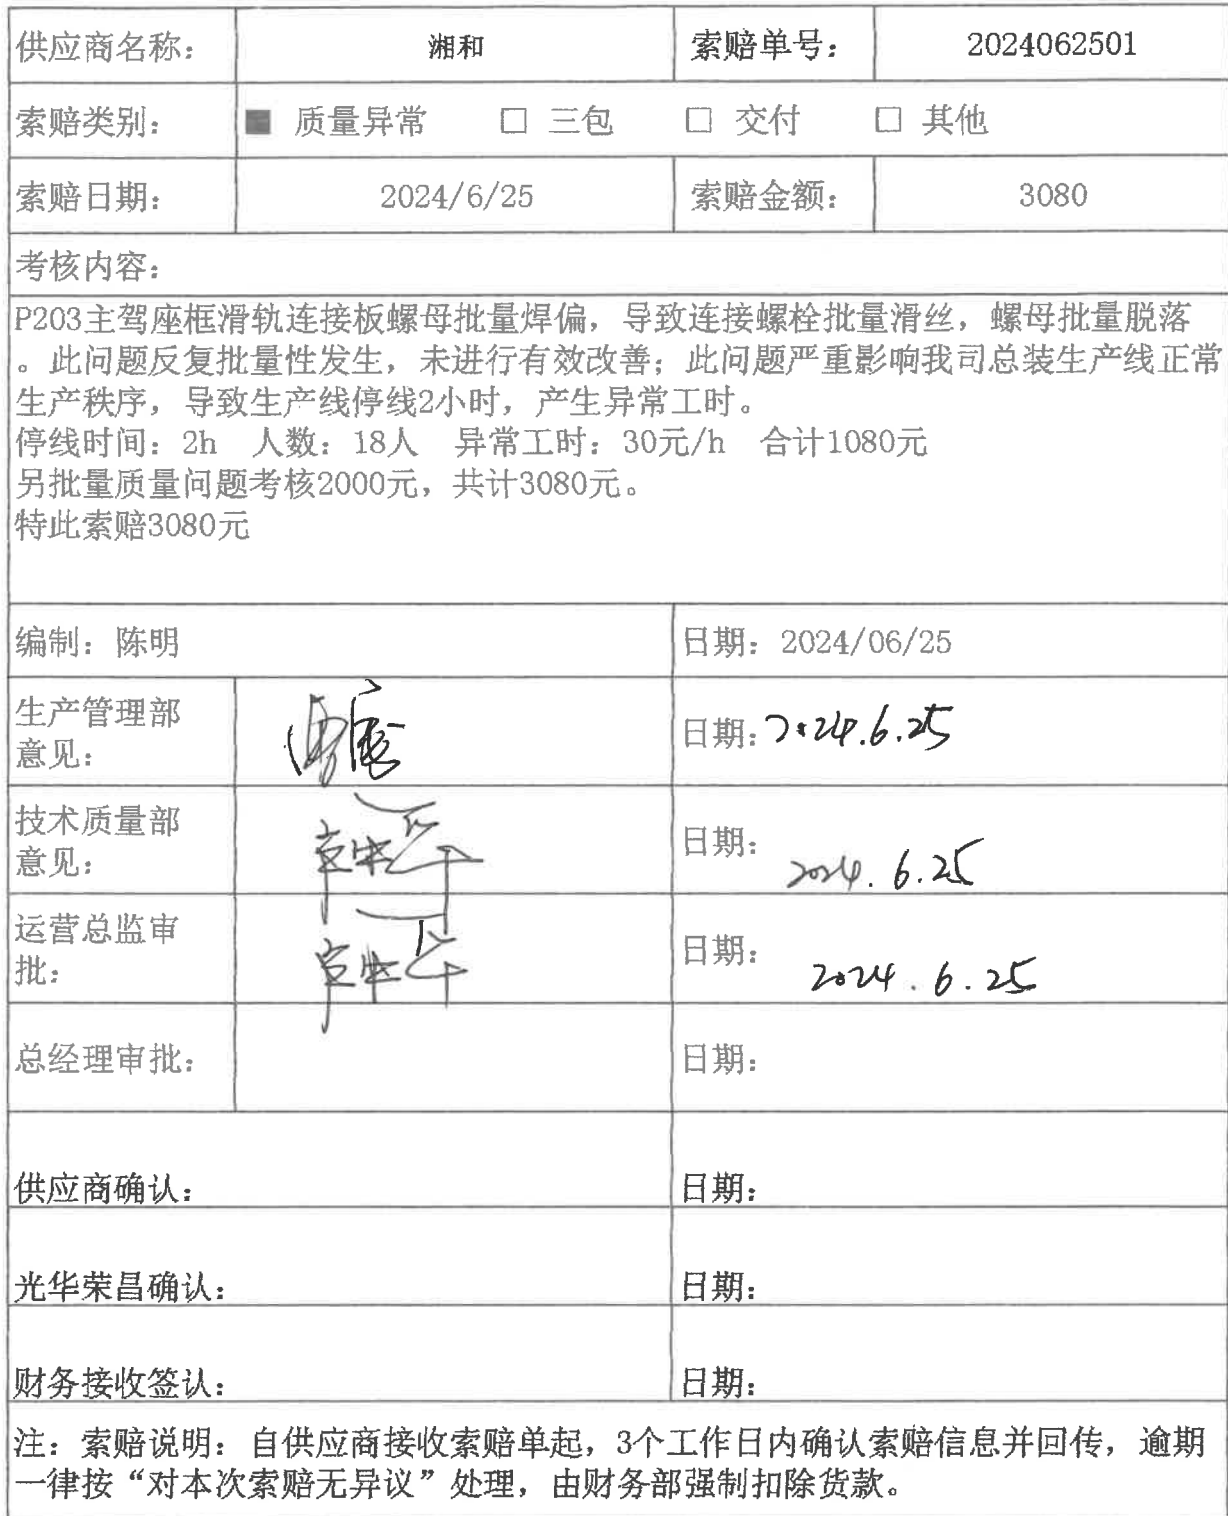 供应商名称： 湘和 索赔单号： 2024062501
索赔类别： ■ 质量异常 □ 三包 □ 交付 □ 其他
索赔日期： 2024/6/25 索赔金额： 3080
考核内容：
P203主驾座框滑轨连接板螺母批量焊偏，导致连接螺栓批量滑丝，螺母批量脱落
。此问题反复批量性发生，未进行有效改善；此问题严重影响我司总装生产线正常
生产秩序，导致生产线停线2小时，产生异常工时。
停线时间：2h 人数：18人 异常工时：30元/h 合计1080元
另批量质量问题考核2000元，共计3080元。
特此索赔3080元
编制：陈明 日期：2024/06/25
生产管理部
意见： 日期：2024.6.25
技术质量部
意见： 日期：2024.6.25
运营总监审
批： 日期：2024.6.25
总经理审批： 日期：
供应商确认： 日期：
光华荣昌确认： 日期：
财务接收签认： 日期：
注：索赔说明：自供应商接收索赔单起，3个工作日内确认索赔信息并回传，逾期
一律按“对本次索赔无异议”处理，由财务部强制扣除货款。